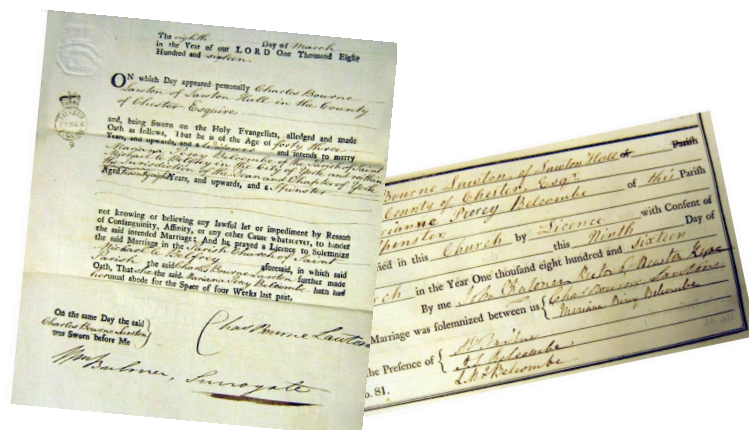 The eighth Day of March
in the Year of our LORD One Thousand Eight
Hundred and sixteen.
ON which Day appeared personally Charles Bourne
Lawton of Lawton Hall in the County
of Chester Esquire
and, being Sworn on the Holy Evangelists, alledged and made
Oath as follows, That he is of the Age of forty three
Years, and upwards, and a and intends to marry
Mariana Percy Belcombe of the Parish of Saint
Michael le Belfrey in the City of York and within
the of the Dean and Chapter of York
Aged Years, and upwards, and a Spinster
not knowing or believing any lawful let or impediment by Reason
of Consanguinity, Affinity, or any other Cause whatsoever, to hinder
the said intended Marriage: And he prayed a Licence to Solemnize
the said Marriage in the Church of Saint
Michael le Belfrey aforesaid, in which said
Parish the said further made
Oath, That the said Mariana Percy Belcombe hath had
usual abode for the Space of four Weeks last past.
On the same Day the said
Charles Bourne Lawton
was Sworn before Me
Chas Bourne Lawton
Wm Bulmer, Surrogate
Bourne Lawton, of Lawton Hall Parish
County of Chester Esqr.
Percy Belcombe of this Parish
Spinster
in this Church by Licence with Consent of
this Ninth Day of
in the Year One thousand eight hundred and sixteen
By me
Marriage was solemnized between us Chas Bourne Lawton
Mariana Percy Belcombe
the Presence of
Belcombe
Belcombe
o. 81.